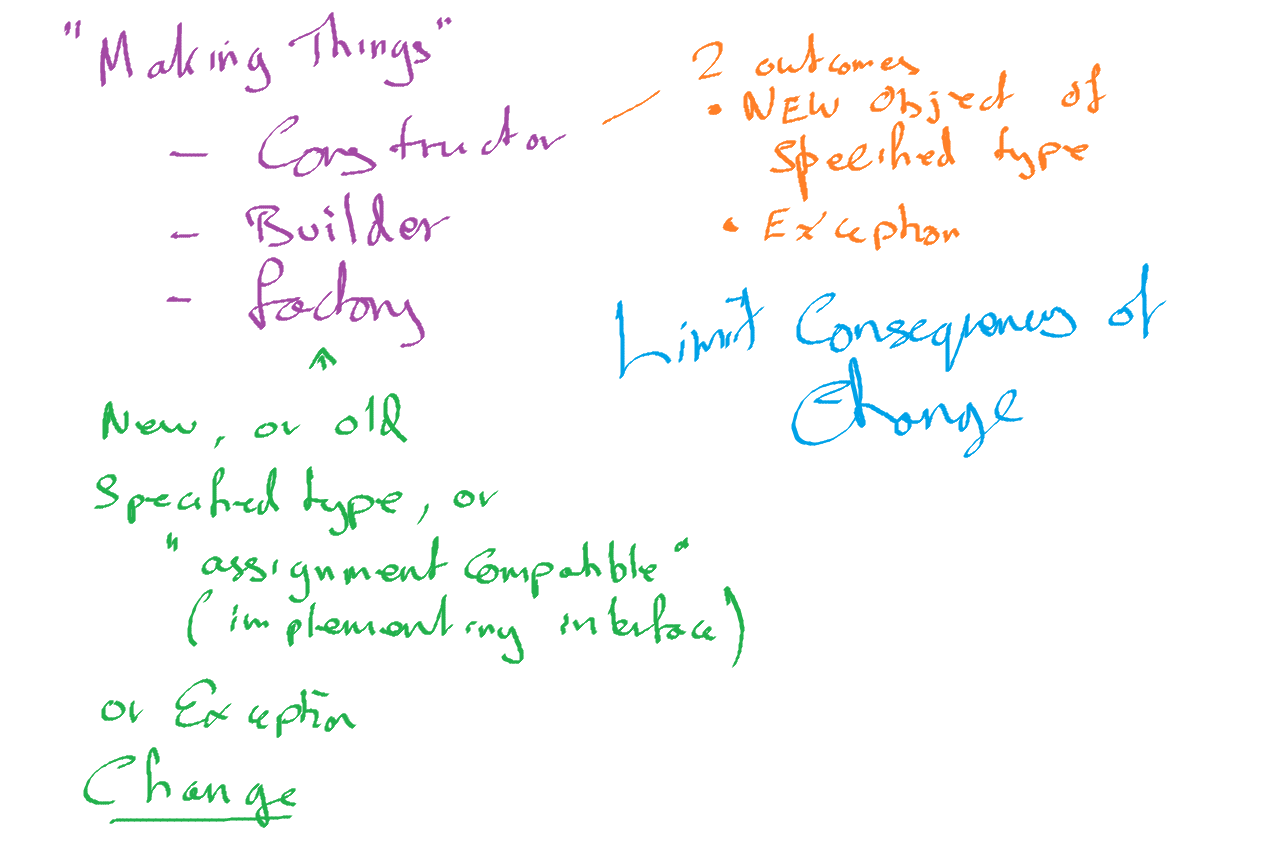 "Making Things"
- Constructor
- Builder
- factory
2 outcomes
• NEW object of
specified type
• Exception
Limit Consequences of
Change
New, or old
Specified type, or
"assignment compatible"
(implementing interface)
or Exception
Change